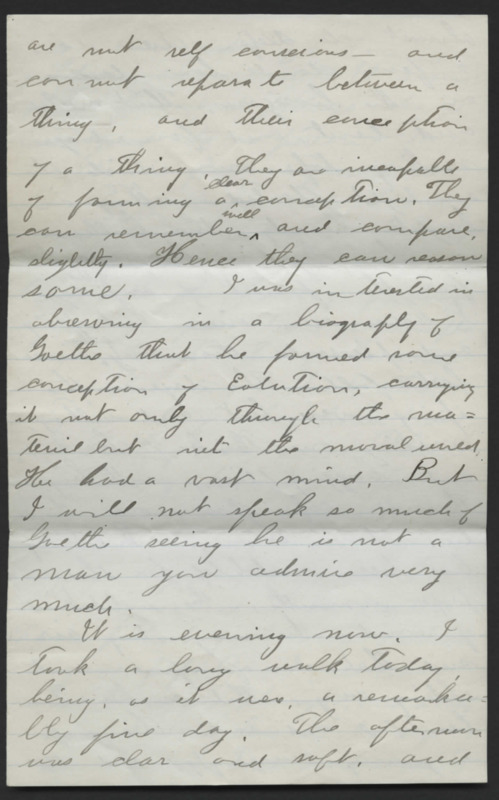 are not self conscious — and
can not separate between a
thing, and their conception
of a thing. They are incapable
clear
of forming a conception. They
well
can remember, and compare,
slightly. Hence they can reason
some. I was interested in
obserwing in a biography of
Goethe that he formed some
conception of Evolution, carrying
it not only through the ma=
terial but into the moral world.
He had a vast mind. But
I will not speak so much of
Goethe seeing he is not a
man you admire very
much.
It is evening now. I
took a long walk today,
being, as it was, a remarka=
bly fine day. The afternoon
was clear and soft, and